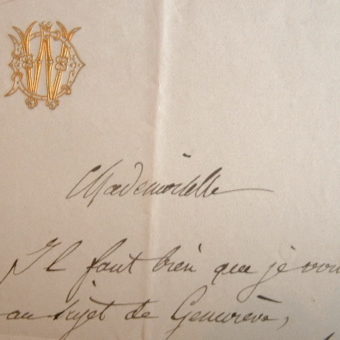 Mademoiselle
Il faut bien que je vou
au sujet de Geneviève,